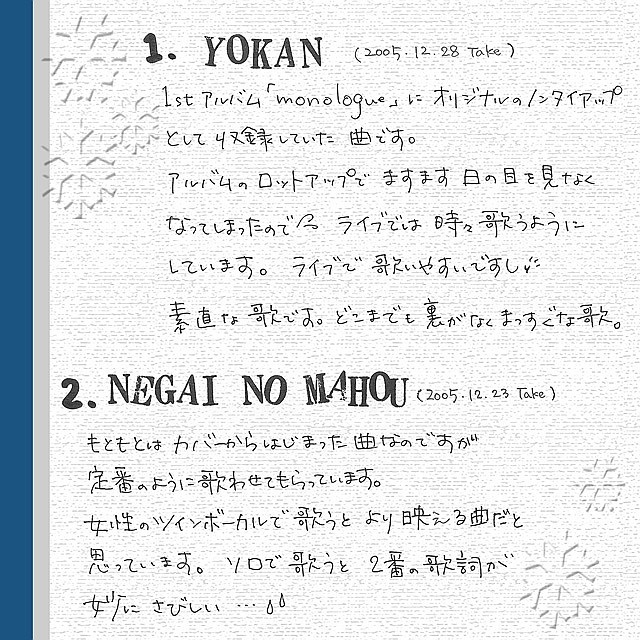 1. YOKAN (2005.12.28 Take)
1stアルバム「monologue」に オリジナルのノンタイアップ
として収録していた 曲です。
アルバムの ロットアップで ますます 日の目を見なく
なってしまったので ライブでは 時々歌うように
しています。 ライブで 歌いやすいですし
素直な歌です。どこまでも裏がなくまっすぐな歌。
2. NEGAI NO MAHOU (2005.12.23 Take)
もともとは カバーからはじまった 曲なのですが
定番のように歌わせてもらっています。
女性のツインボーカルで 歌うと より映える曲だと
思っています。 ソロで歌うと 2番の歌詞が
妙に さびしい …